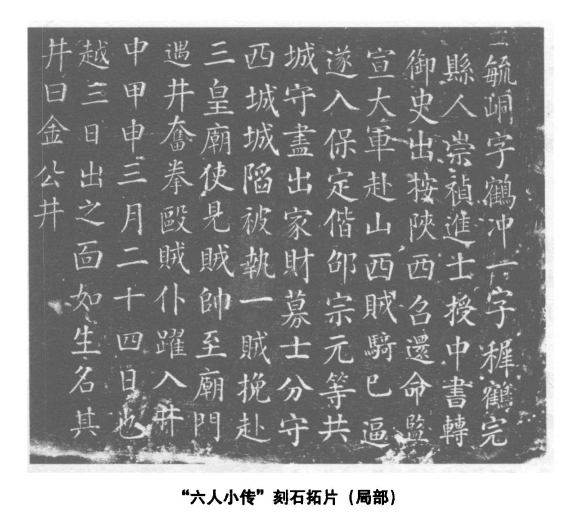 毓峒字鶴冲一字穉鶴完
縣人崇禎進士授中書轉
御史出按陝西召還命監
宣大軍赴山西賊騎已逼
遂入保定偕邵宗元等共
城守盡出家財募士分守
西城城陷被執一賊挽赴
三皇廟使見賊帥至廟門
遇井奮拳毆賊仆躍入井
中甲申三月二十四日也
越三日出之面如生名其
井曰金公井
“六人小传”刻石拓片（局部）